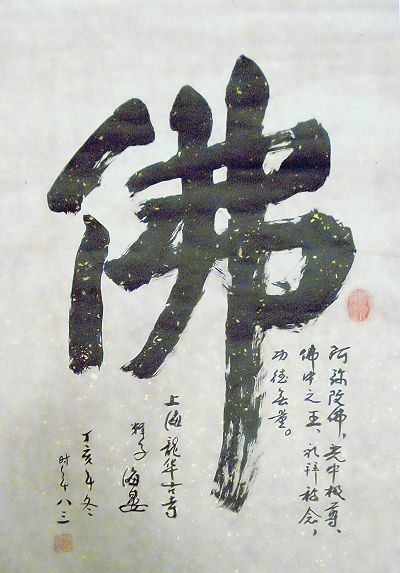 佛
阿弥陀佛,光中极尊、
佛中之王、礼拜称念,
功德无量。
上海龙华古寺
释子
丁亥年冬
时年八三